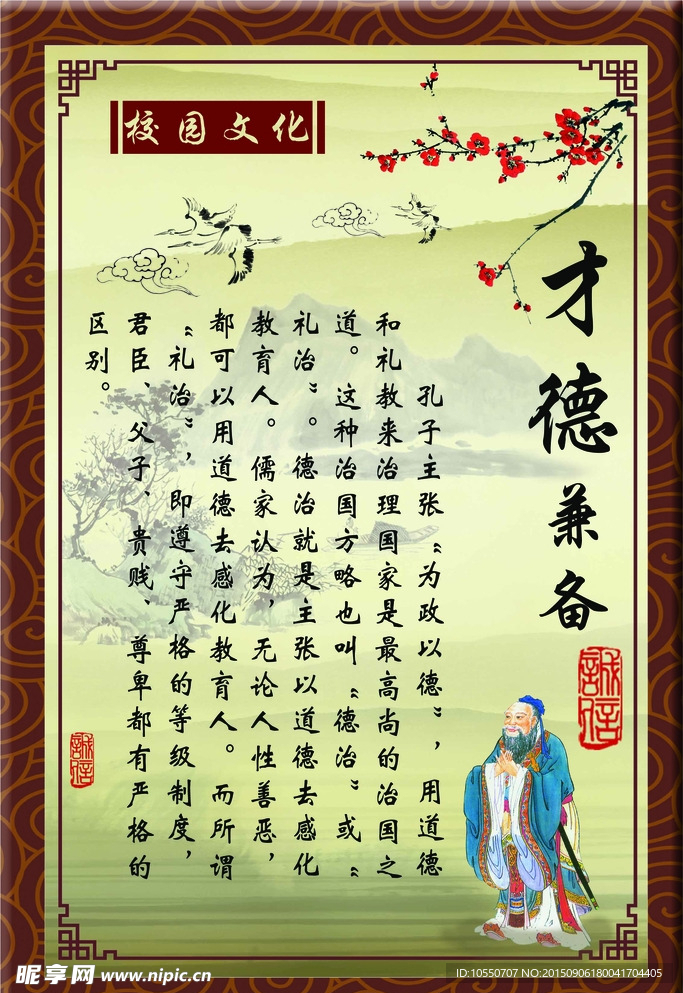 校园文化
才德兼备
孔子主张“为政以德”，用道德
和礼教来治理国家是最高尚的治国之
道。这种治国方略也叫“德治”或“
礼治”。德治就是主张以道德去感化
教育人。儒家认为，无论人性善恶，
都可以用道德去感化教育人。而所谓
“礼治”，即遵守严格的等级制度，
君臣、父子、贵贱、尊卑都有严格的
区别。
誠信
誠信
昵享网 www.nipic.cn
ID:10550707 NO:20150906180041704405